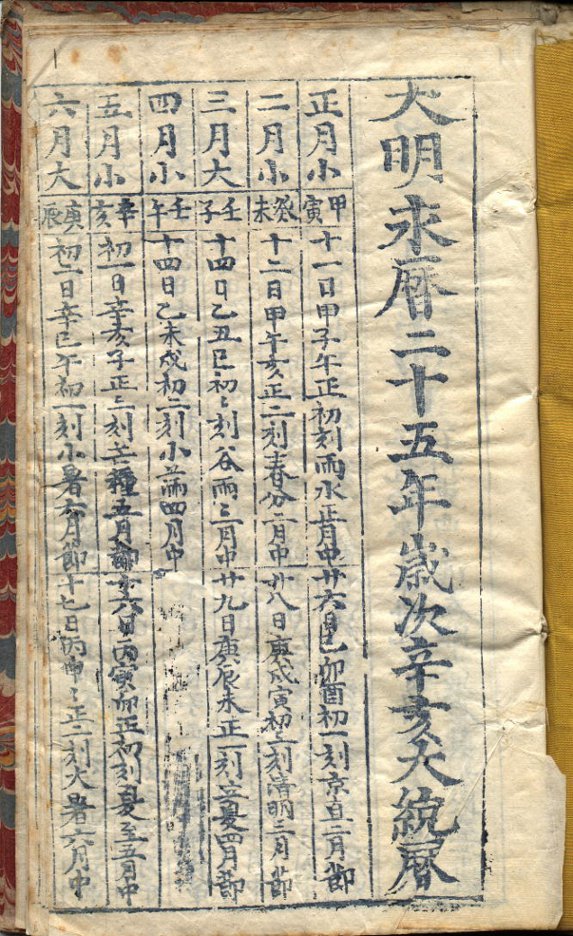 大明永曆二十五年歲次辛亥大統曆
正月小
甲寅
十一日甲子午正初刻雨水正月中
廿六日己卯酉初一刻京直二月節
二月小
癸未
十二日甲午亥正二刻春分二月中
廿八日庚戌寅初二刻清明三月節
三月大
壬子
十四日乙丑巳初三刻谷雨三月中
廿九日庚辰未正一刻立夏四月節
四月小
壬午
十四日乙未戌初二刻小滿四月中
五月小
辛亥
初一日辛亥子正三刻芒種五月節
十六日丙寅卯正初刻夏至五月中
六月大
庚辰
初二日辛巳午初一刻小暑六月節
十七日丙申申正二刻大暑六月中